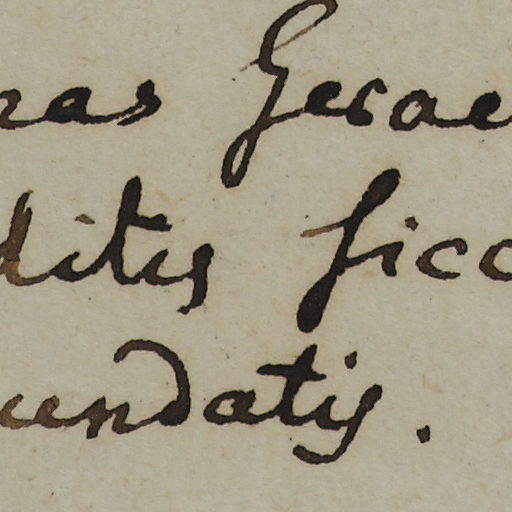 nas Gerae
ditis sicc
undatis.